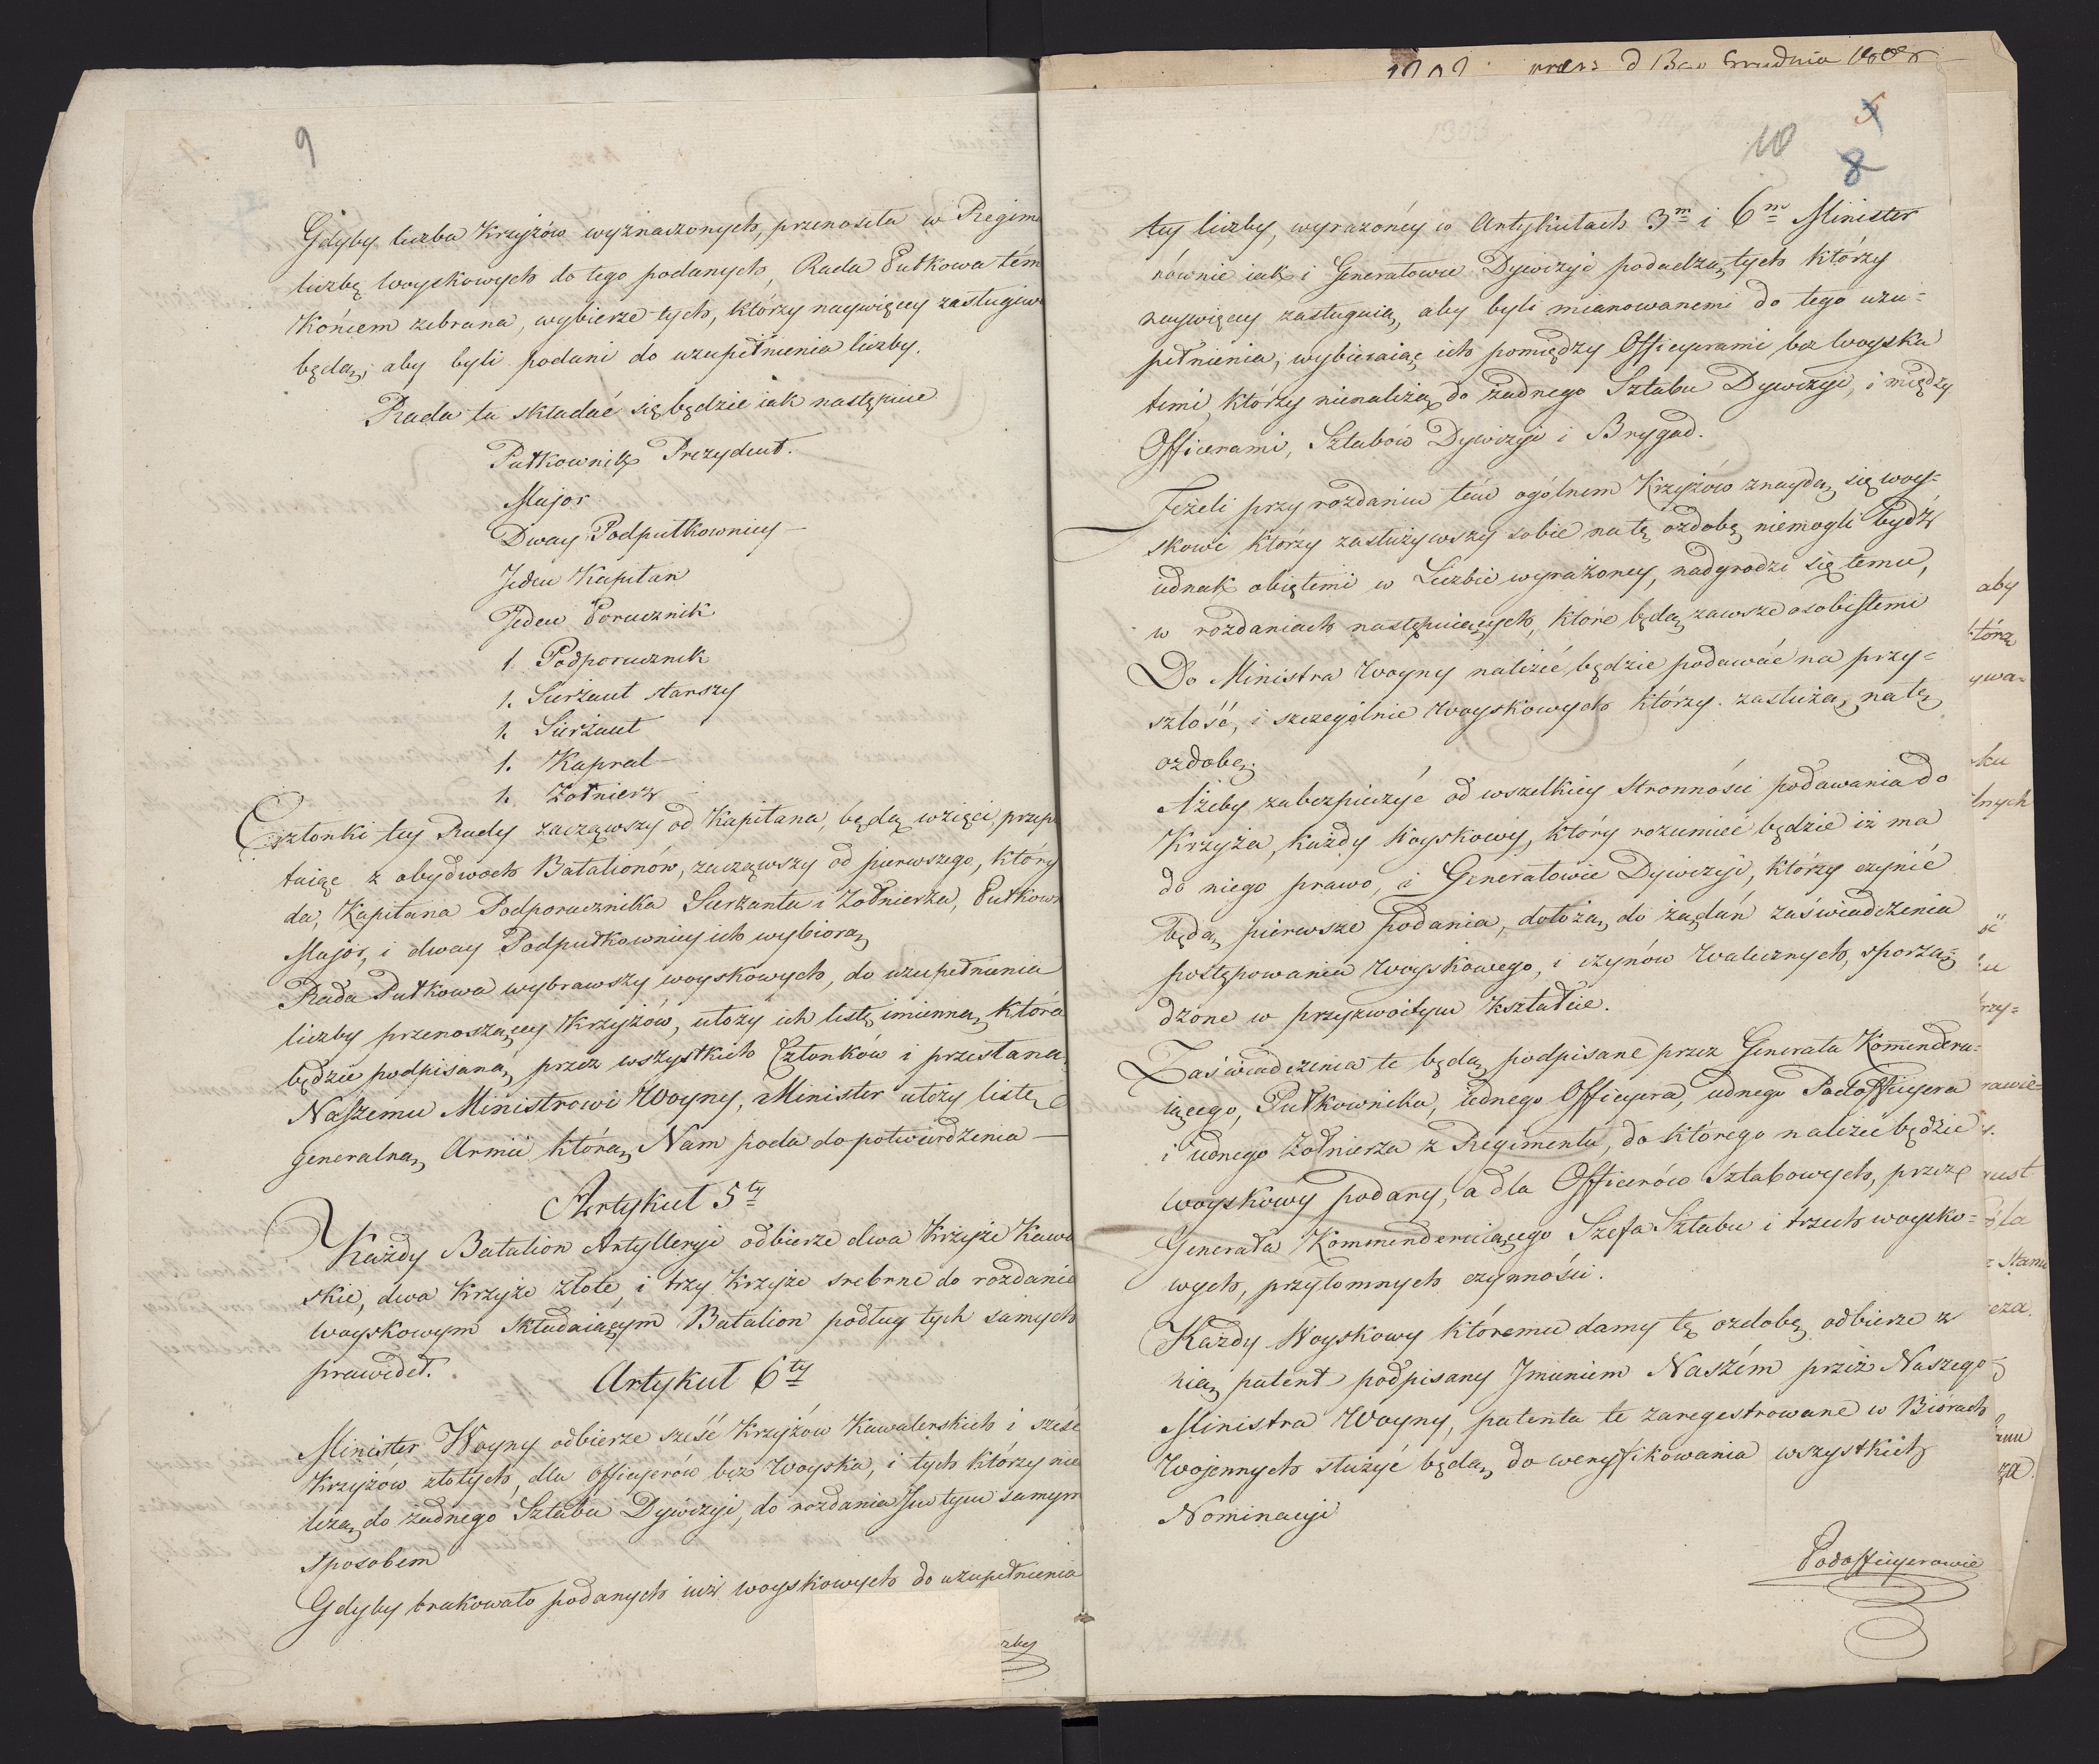 9
Gdyby liczba Krzyżów wyznaczonych, przenosiła w Regim
liczbę woyskowych do tego podanych, Rada Pułkowa tém
końcem zebrana, wybierze tych, którzy naywięcey zasługiw
będą, aby byli podani do uzupełnienia liczby.
Rada ta składać się będzie iak następuie
Pułkownik Prezydent.
Major
Dway Podpułkownicy
Jeden Kapitan
Jeden Porucznik
1. Podporucznik
1. Sierżant starszy
1. Sierżant
1. Kapral
1. Żołnierz
Członki tey Rady zacząwszy od Kapitana, będą wzięci, przep
taiąc z obydwoch Batalionów, zacząwszy od pierwszego, który
da, Kapitana Podporucznika Sierżanta i Żołnierza, Pułkown
Major, i dway Podpułkownicy ich wybiorą
Rada Pułkowa wybrawszy woyskowych, do uzupełnienia
liczby przenoszącey Krzyżów, ułoży ich listę imienną, która
będzie podpisaną, przez wszystkich Członków i przesłana
Naszemu Ministrowi Woyny, Minister ułoży listę
generalną, Armii którą, Nam poda do potwierdzenia
Artykuł 5ty
Każdy Batalion Artylleryi odbierze dwa Krzyże Kawa
skie, dwa Krzyże złote, i trzy Krzyże srebrne do rozdania
woyskowym składaiącym Batalion podług tych samych
prawideł.
Artykuł 6ty
Minister Woyny odbierze sześć Krzyżów Kawalerskich i sześć
Krzyżów złotych, dla officyerów bez Woyska, i tych którzy nie
liczą do żadnego Sztabu Dywizyi, do rozdania Im tym samym
sposobem
Gdyby brakowało podanych iuż woyskowych do uzupełnienia
zby
Grudnia
5
10
8
tey liczby, wyrażoney w Artykułach 3m i 6m Minister
równie iak i Generałowie Dywizyi podadzą, tych którzy
naywięcey zasługuią, aby byli mianowanemi do tego uzu=
pełnienia, wybieraiąc ich pomiędzy Officyerami bez Woyska
temi którzy nienależą do żadnego Sztabu Dywizyi, i między
Officerami, Sztabów Dywizyi i Brygad.
Jeżeli przy rozdaniu tém ogólnem Krzyżów znaydą się woy=
skowi którzy zasłużywszy sobie na tę ozdobę niemogli bydź
iednak obiętemi w Liczbie wyrażoney, nadgrodzi się temu,
w rozdaniach następuiących, które będą zawsze osobistemi
Do Ministra Woyny należeć będzie podawać na przy=
szłość, i szczególnie Woyskowych którzy zasłużą, na tę
ozdobę.
Ażeby zabezpieczyć od wszelkiey stronności podawania do
Krzyża, każdy Woyskowy, który rozumieć będzie iż ma
do niego prawo, i Generałowie Dywizyi, którzy czynić
będą pierwsze podania, dołożą, do żądań zaświadczenia
postępowania Woyskowego, i czynów walecznych, sporzą=
dzone w przyzwoitym kształcie.
Zaświadczenia te będą, podpisane przez Generała Komenderu=
iącego, Pułkownika, iednego Officyera, iednego Podofficyera
i iednego Żołnierza z Regimentu, do którego należeć będzie
woyskowy podany, a dla Officerów Sztabowych, przez
Generała Kommenderuiącego Szefa Sztabu i trzech woysko=
wych, przytomnych czynności.
Każdy Woyskowy któremu damy tę ozdobę, odbierze z
nią, patent podpisany Imieniem Naszém przez Naszego
Ministra Woyny, patenta te zaregestrowane w Biórach
Wojennych służyć będą, do weryfikowania wszystkich
Nominacyi
Podofficyerowie
aby
która
ywa=
ku
lnych
rzy=
rawie
la
Stanu
cza.